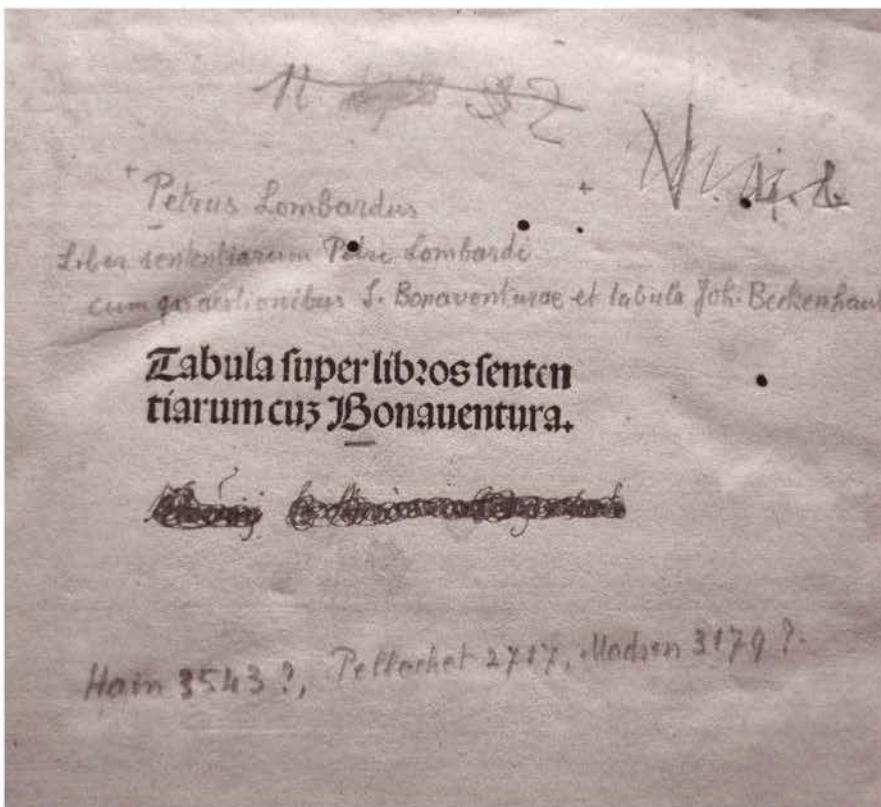 Petrus Lombardus
Liber sententiarum Petri Lombardi
cum quaestionibus S. Bonaventurae et tabula Joh. Beckenhaub
Tabula ſuper libꝛos ſenten
tiarum cuꝫ Bonauentura.
Hain 3543?, Pellechet 2717, Madsen 3179?.